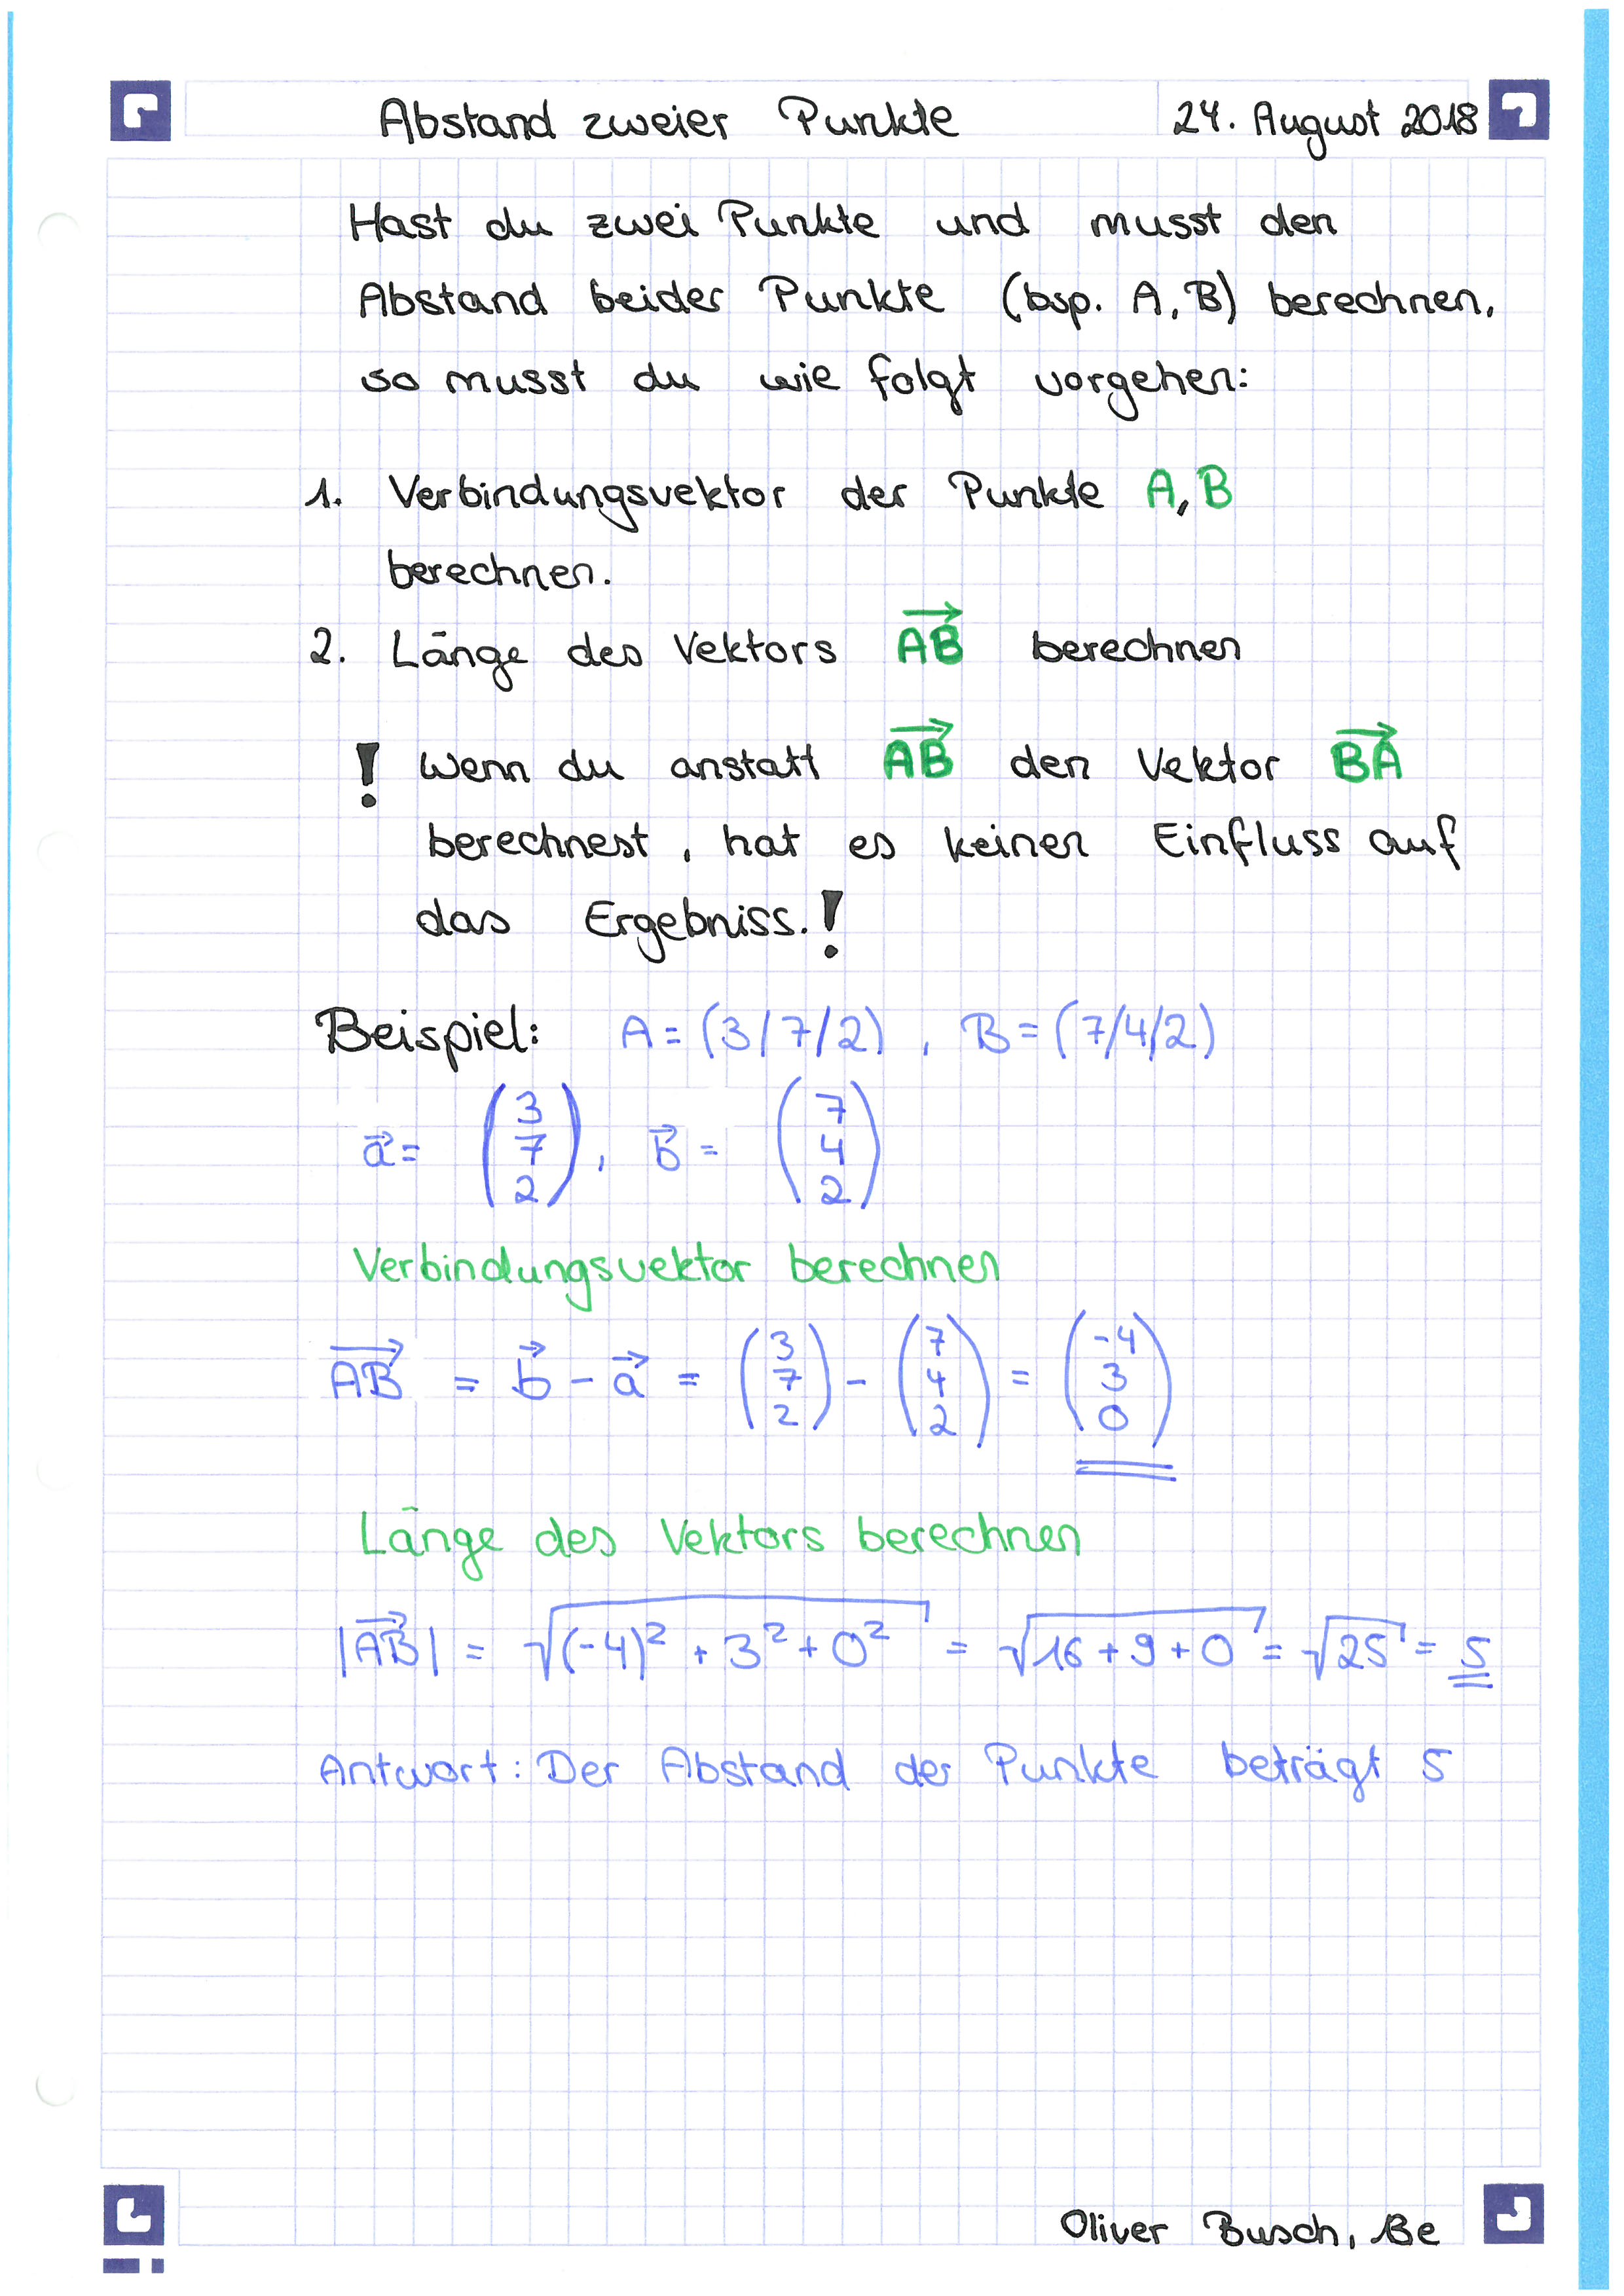 Abstand zweier Punkte 24. August 2018
Hast du zwei Punkte und musst den
Abstand beider Punkte (bsp. A, B) berechnen,
so musst du wie folgt vorgehen:
1. Verbindungsvektor der Punkte A, B
berechnen.
2. Länge des Vektors $\overrightarrow{AB}$ berechnen
! Wenn du anstatt $\overrightarrow{AB}$ den Vektor $\overrightarrow{BA}$
berechnest, hat es keinen Einfluss auf
das Ergebniss. !
Beispiel: A = (3/7/2), B = (7/4/2)
$\vec{a} = \begin{pmatrix} 3 \\ 7 \\ 2 \end{pmatrix}, \vec{b} = \begin{pmatrix} 7 \\ 4 \\ 2 \end{pmatrix}$
Verbindungsvektor berechnen
$\overrightarrow{AB} = \vec{b} - \vec{a} = \begin{pmatrix} 3 \\ 7 \\ 2 \end{pmatrix} - \begin{pmatrix} 7 \\ 4 \\ 2 \end{pmatrix} = \begin{pmatrix} -4 \\ 3 \\ 0 \end{pmatrix}$
Länge des Vektors berechnen
$|\overrightarrow{AB}| = \sqrt{(-4)^2 + 3^2 + 0^2} = \sqrt{16 + 9 + 0} = \sqrt{25} = 5$
Antwort: Der Abstand der Punkte beträgt 5
Oliver Busch, Be